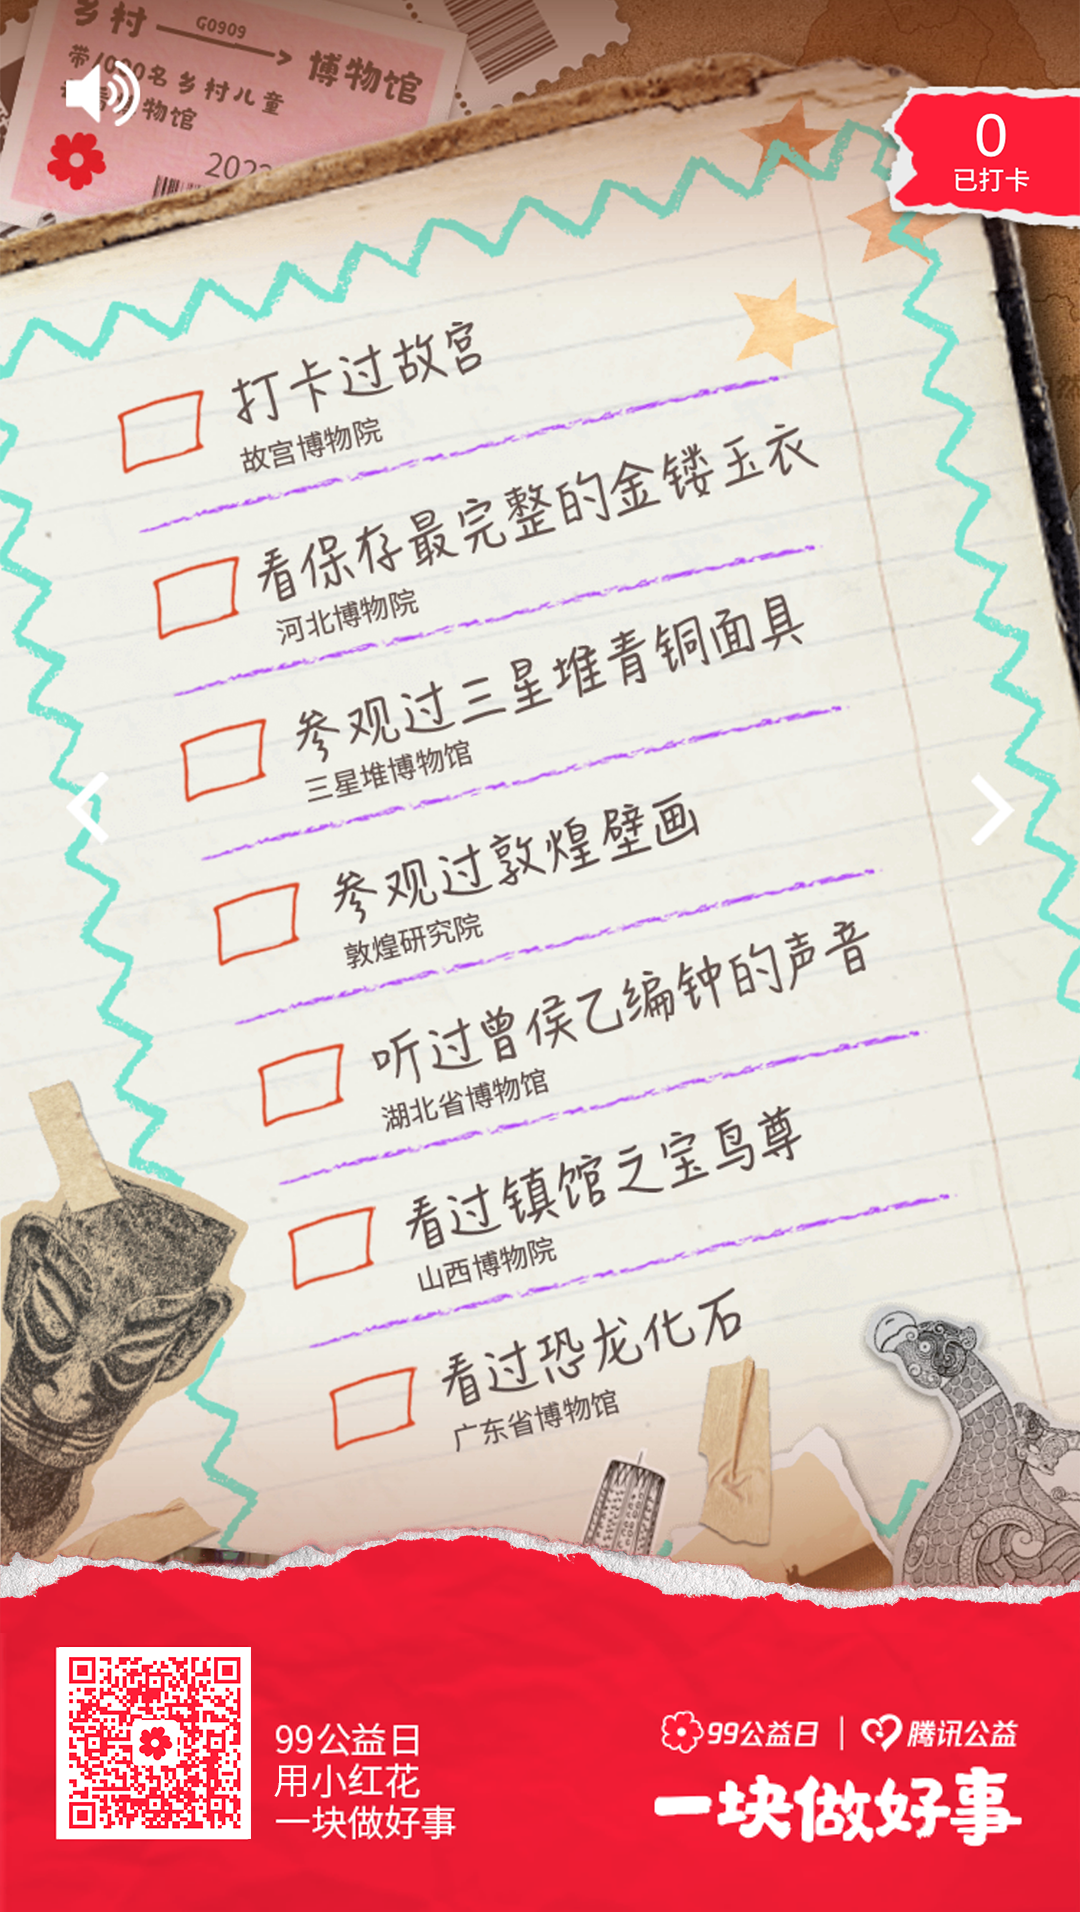 乡村
G0909
博物馆
带1000名乡村儿童
物馆
202
0
已打卡
打卡过故宫
故宫博物院
看保存最完整的金镂玉衣
河北博物院
参观过三星堆青铜面具
三星堆博物馆
参观过敦煌壁画
敦煌研究院
听过曾侯乙编钟的声音
湖北省博物馆
看过镇馆之宝鸟尊
山西博物院
看过恐龙化石
广东省博物馆
99公益日
用小红花
一块做好事
99公益日 | 腾讯公益
一块做好事